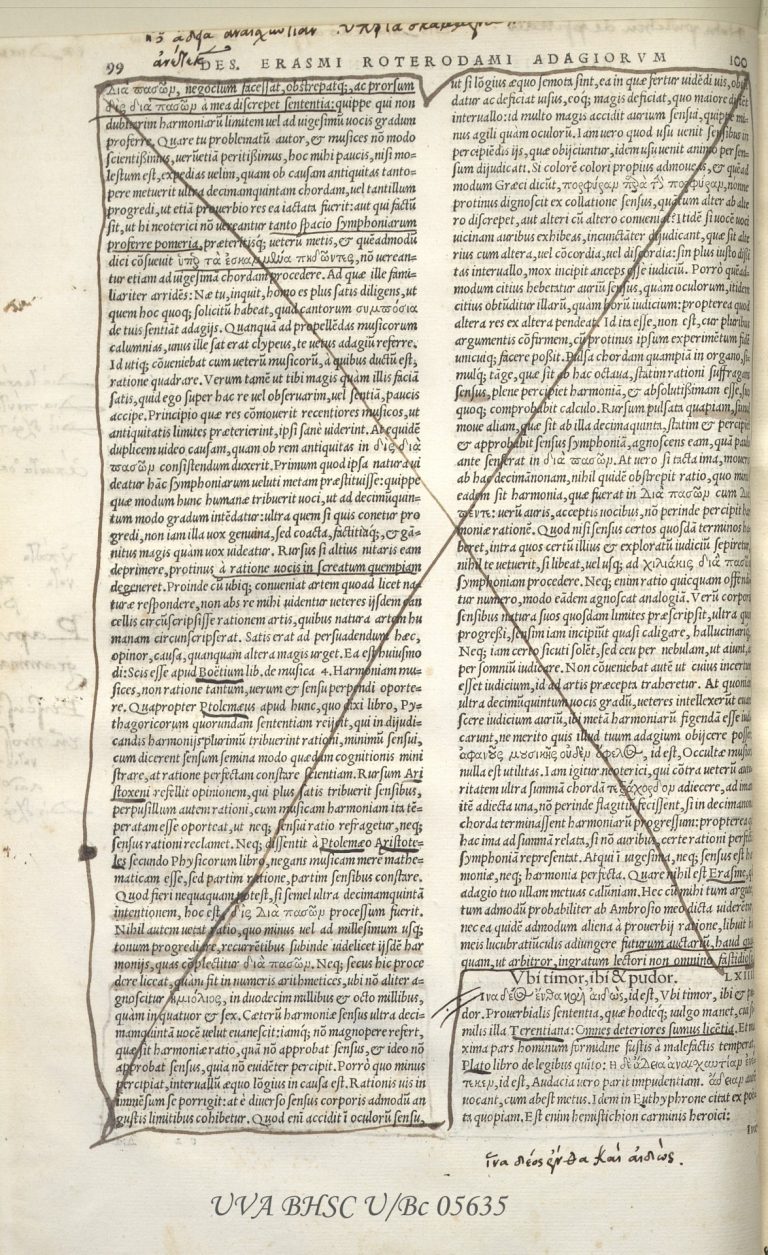 99 DES. ERASMI ROTERODAMI ADAGIORVM 100
Διὰ πασῶν, negocium facessat, obstrepatq́;, ac prorsum
δὶς διὰ πασῶν à mea discrepet sententia: quippe qui non
dubitarim harmoniarũ limitem uel ad uigesimũ uocis gradum
proferre. Quare tu problematũ autor, & musices nõ modo
scientißimus, uerùmetiã peritißimus, hoc mihi paucis, nisi mo=
lestum est, expedias uelim, quam ob causam antiquitas tanto=
pere metuerit ultra decimamquintam chordam, uel tantillum
progredi, ut etiã prouerbio res ea iactata fuerit: aut qui factũ
sit, ut hi neoterici nõ uereantur tanto spacio symphoniarum
proferre pomeria, præteritisq́; ueterũ metis, & quẽadmodũ
dici cõsueuit ὑπὲρ τὰ ἐσκαμμένα πηδῶντες, nõ uerean=
tur etiam ad uigesimã chordam procedere. Ad quæ ille fami=
liariter arridẽs: Næ tu, inquit, homo es plus satis diligens, ut
quem hoc quoq; solicitũ habeat, quid cantorum συμπόσια
de tuis sentiãt adagijs. Quanquã ad propellẽdas musicorum
calumnias, unus ille sat erat clypeus, te uetus adagiũ referre.
Id utiq; cõueniebat cum ueterũ musicorũ, à quibus ductũ est,
ratione quadrare. Verum tamẽ ut tibi magis quàm illis faciã
satis, quid ego super hac re uel obseruarim, uel sentiã, paucis
accipe. Principio quæ res cõmouerit recentiores musicos, ut
antiquitatis limites præterierint, ipsi sanè uiderint. At equidẽ
duplicem uideo causam, quam ob rem antiquitas in δὶς διὰ
πασῶν consistendum duxerit. Primum quod ipsa natura ui
deatur hãc symphoniarum ueluti metam præstituisse: quippe
quæ modum hunc humanæ tribuerit uoci, ut ad decimũquin=
tum modo gradum intẽdatur: ultra quem si quis conetur pro
gredi, non iam illa uox genuina, sed coacta, factitiaq́;, & gã=
nitus magis quàm uox uideatur. Rursus si altius nitaris eam
deprimere, protinus à ratione uocis in screatum quempiam
degeneret. Proinde cũ ubiq; conueniat artem quoad licet na
turæ respõdere, non abs re mihi uidentur ueteres ijsdem can
cellis circũscripsisse rationem artis, quibus natura artem hu
manam circunscripserat. Satis erat ad persuadendum hæc,
opinor, causa, quanquam altera magis urget. Ea est huiusmo
di: Scis esse apud Boëtium lib. de musica 4. Harmoniam mu=
sices, non ratione tantum, uerum & sensu perpendi oporte=
re. Quapropter Ptolemæus apud hunc, quo dixi libro, Py=
thagoricorum quorundam sententiam reijcit, qui in dijudi=
candis harmonijs plurimũ tribuerint rationi, minimũ sensui,
cum dicerent sensum semina modo quædam cognitionis mini
strare, at ratione perfectam constare scientiam. Rursum Ari
stoxeni refellit opinionem, qui plus satis tribuerit sensibus,
perpusillum autem rationi, cum musicam harmoniam ita tẽ=
peratam esse oporteat, ut neq; sensui ratio refragetur, neq;
sensus rationi reclamet. Neq; dissentit à Ptolemæo Aristote=
les secundo Physicorum libro, negans musicam merè mathe=
maticam esse, sed partim ratione, partim sensibus constare.
Quod fieri nequaquam potest, si semel ultra decimamquintã
intentionem, hoc est, δὶς Διὰ πασῶν processum fuerit.
Nihil autem uetat ratio, quo minus uel ad millesimum usq;
tonum progrediare, recurrẽtibus subinde uidelicet ijsdẽ har
monijs, quas cõplectitur διὰ πασῶν. Neq; secus hic proce
dere liceat, quàm fit in numeris arithmetices, ubi nõ aliter a=
gnoscitur ἡμιόλιος, in duodecim millibus & octo millibus,
quàm in quatuor & sex. Cæterũ harmoniæ sensus ultra deci=
mamquintã uocẽ uelut euanescit: iamq́; nõ magnopere refert,
quæ sit harmoniæ ratio, quã nõ approbat sensus, & ideo nõ
approbat sensus, quia nõ euidẽter percipit. Porrò quo minus
percipiat, interuallũ æquo lõgius in causa est. Rationis uis in
immẽsum se porrigit: at è diuerso sensus corporis admodũ an
gustis limitibus cohibetur. Quod enī accidit ĩ oculorũ sensu,
ut si lõgius æquo semota sint, ea in quæ fertur uidẽdi uis,
datur ac deficiat uisus, eoq́; magis deficiat, quo maiore
interuallo: id multo magis accidit aurium sensui,
nus agili quàm oculorũ. Iam uero quod usu uenit sensibus in
percipiẽdis ijs, quæ obijciuntur, idem usu uenit animo per sen=
sum dijudicati. Si colorẽ colori propius admoueas, &
modum Græci dicũt, πορφύραν πρὸς τὴν πορφύραν, nonne
protinus dignoscit ex collatione sensus, quatum alter ab alte
ro discrepet, aut alteri cũ altero conueniat? Itidẽ si uocẽ uoci
uicinam auribus exhibeas, incunctãter dijudicant, quæ sit alte
rius cum altera, uel cõcordia, uel discordia: sin plus iusto
tas interuallo, mox incipit anceps esse iudiciũ. Porrò quẽad=
modum citius hebetatur auriũ sensus, quàm oculorum, itidem
citius obtũditur illarũ, quàm horũ iudicium: propterea quod
altera res ex altera pendeat. Id ita esse, non est, cur pluribus
argumentis cõfirmem, cũ protinus ipsum experimẽtum fidẽ
unicuiq; facere poßit. Pulsa chordam quampiã in organo,
mulq́; tãge, quæ sit ab hac octaua, statim rationi suffragans
sensus, plene percipiet harmoniã, & absolutißimam esse,
quoq; comprobabit calculo. Rursum pulsata quapiam,
moue aliam, quæ sit ab illa decimaquinta, statim & percipiet
& approbabit sensus symphoniã, agnoscens eam, quã
ante senserat in διὰ πασῶν. At uero si tacta ima, moueris
ab hac decimãnonam, nihil quidẽ obstrepit ratio, quo minus
eadem sit harmonia, quæ fuerat in Διὰ πασῶν cum Διὰ
πέντε: uerũ auris, acceptis uocibus, nõ perinde percipit har
moniæ rationẽ. Quod nisi sensus certos quosdã terminos ha
beret, intra quos certũ illius & exploratũ iudiciũ sepiretur,
nihil te uetuerit, si libeat, uel usq; ad χιλιάκις διὰ πασῶν
symphoniam procedere. Neq; enim ratio quicquam offendi
tur numero, modo eãdem agnoscat analogiã. Verũ corporis
sensibus natura suos quosdam limites præscripsit, ultra quos
progreßi, sensim iam incipiũt quasi caligare, hallucinariq́;.
Neq; iam certo sicuti solẽt, sed ceu per nebulam, ut aiunt,
per somniũ iudicare. Non cõueniebat autẽ ut cuius incertum
esset iudicium, id ad artis præcepta traheretur. At quoniam
ultra decimũquintum uocis gradũ, ueteres intellexerũt
scere iudicium auriũ, ibi metã harmoniarũ figendã esse iudi
carunt, ne merito quis illud tuum adagium obijcere posset,
ἀφανοῦς μουσικῆς οὐδὲν ὄφελος, id est, Occultæ musices
nulla est utilitas. Iam igitur neoterici, qui cõtra ueterũ auto
ritatem ultra summã chordã τετράχορδον adiecere, ad imam
itẽ adiecta una, nõ perinde flagitiũ fecissent, si in decimanona
chorda terminassent harmoniarũ progressim: propterea
hac ima ad summã relata, si nõ auribus, certe rationi perfectã
symphoniã representat. Atqui ĩ uigesima, neq; sensus est har
moniæ, neq; harmonia perfecta. Quare nihil est Erasme,
adagio tuo ullam metuas calũniam. Hec cũ mihi tum argute,
tum admodũ probabiliter ab Ambrosio meo dicta uiderẽtur,
nec ea quidẽ admodum aliena à prouerbij ratione, libuit
meis lucubratiũculis adiungere futurum auctariũ, haud
quam, ut arbitror, ingratum lectori non omnino fastidioso.
Vbi timor, ibi & pudor. LXIIII
Ἵνα δέος ἔνθα καὶ αἰδώς, id est, Vbi timor, ibi & pu
dor. Prouerbialis sententia, quæ hodieq́; uulgo manet, cui
milis illa Terentiana: Omnes deteriores sumus licẽtia. Et
xima pars hominum formidine fustis à malefactis temperat.
Plato libro de legibus quĩto: Ἡ δὲ ἄδεια ἀναισχυντίαν ἐν
τεκεν, id est, Audacia uero parit impudentiam. ἄδειαν autem
uocant, cum abest metus. Idem in Euthyphrone citat ex poe
ta quopiam. Est enim hemistichion carminis heroici:
ἵνα δέος ἔνθα καὶ αἰδώς.
UVA BHSC U/Bc 05635